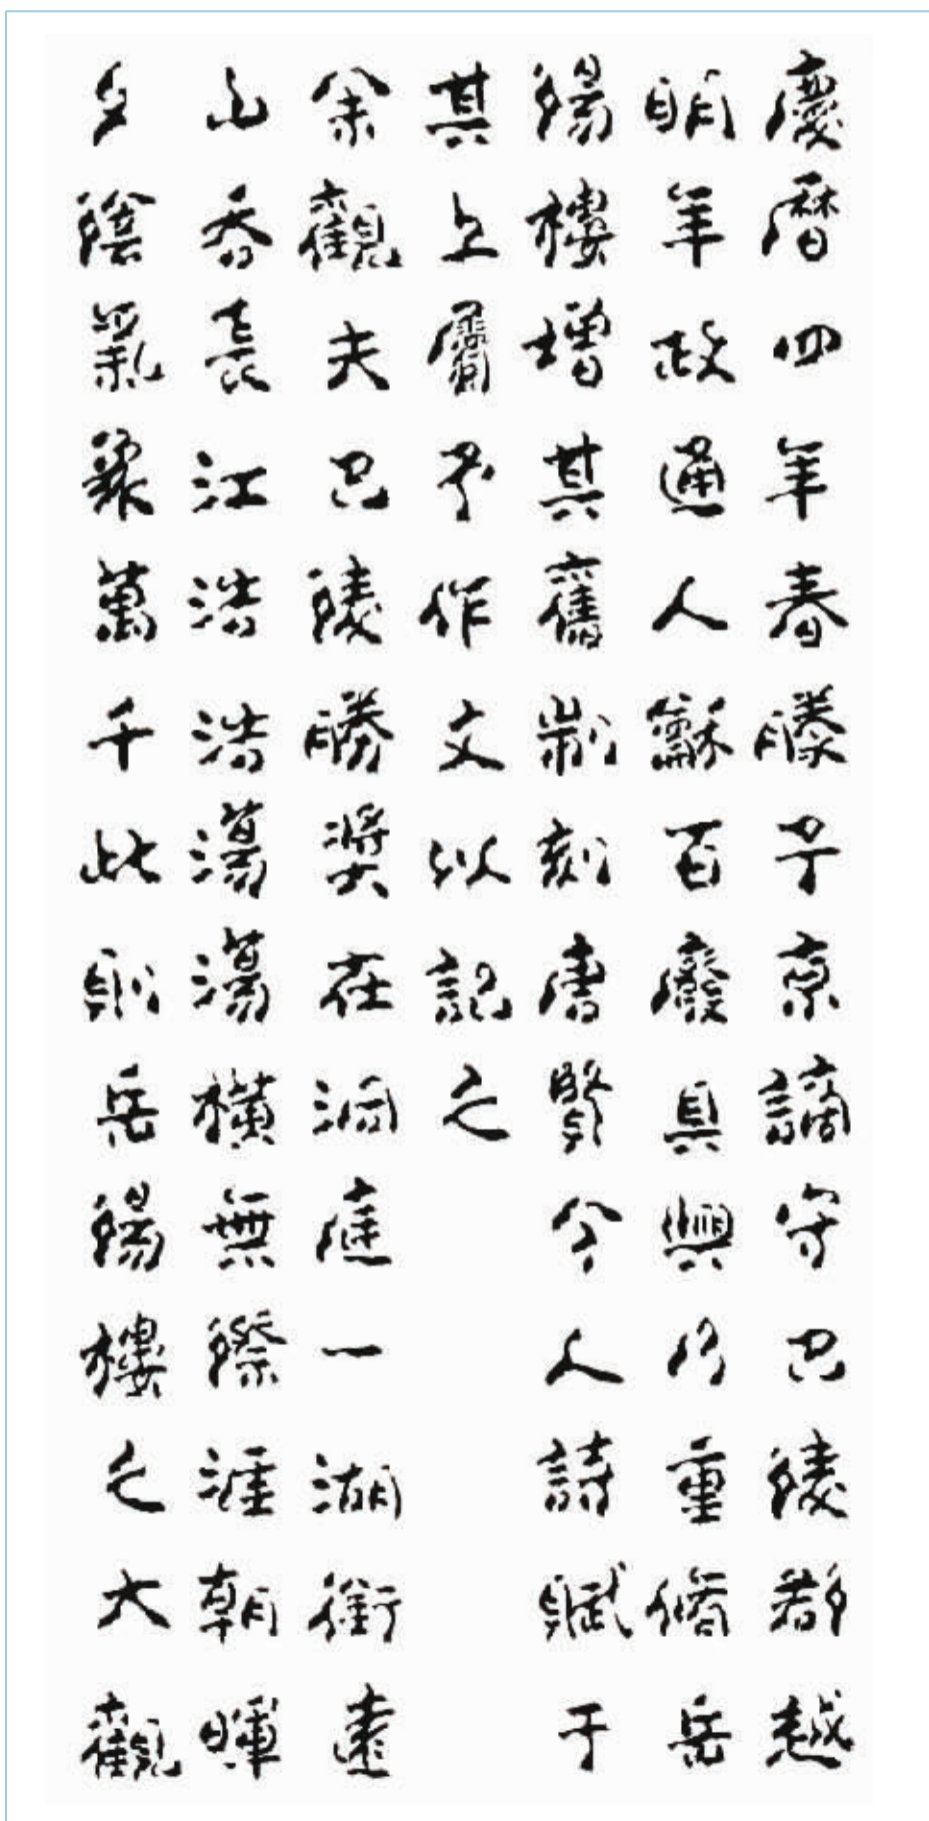 慶曆四年春滕子京謫守巴陵郡越
明年政通人龢百廢具興乃重脩岳
陽樓增其舊制刻唐賢今人詩賦于
其上屬予作文以記之
余觀夫巴陵勝獎在洞庭一湖銜遠
山吞長江浩浩蕩蕩橫無際涯朝暉
夕陰氣象萬千此則岳陽樓之大觀